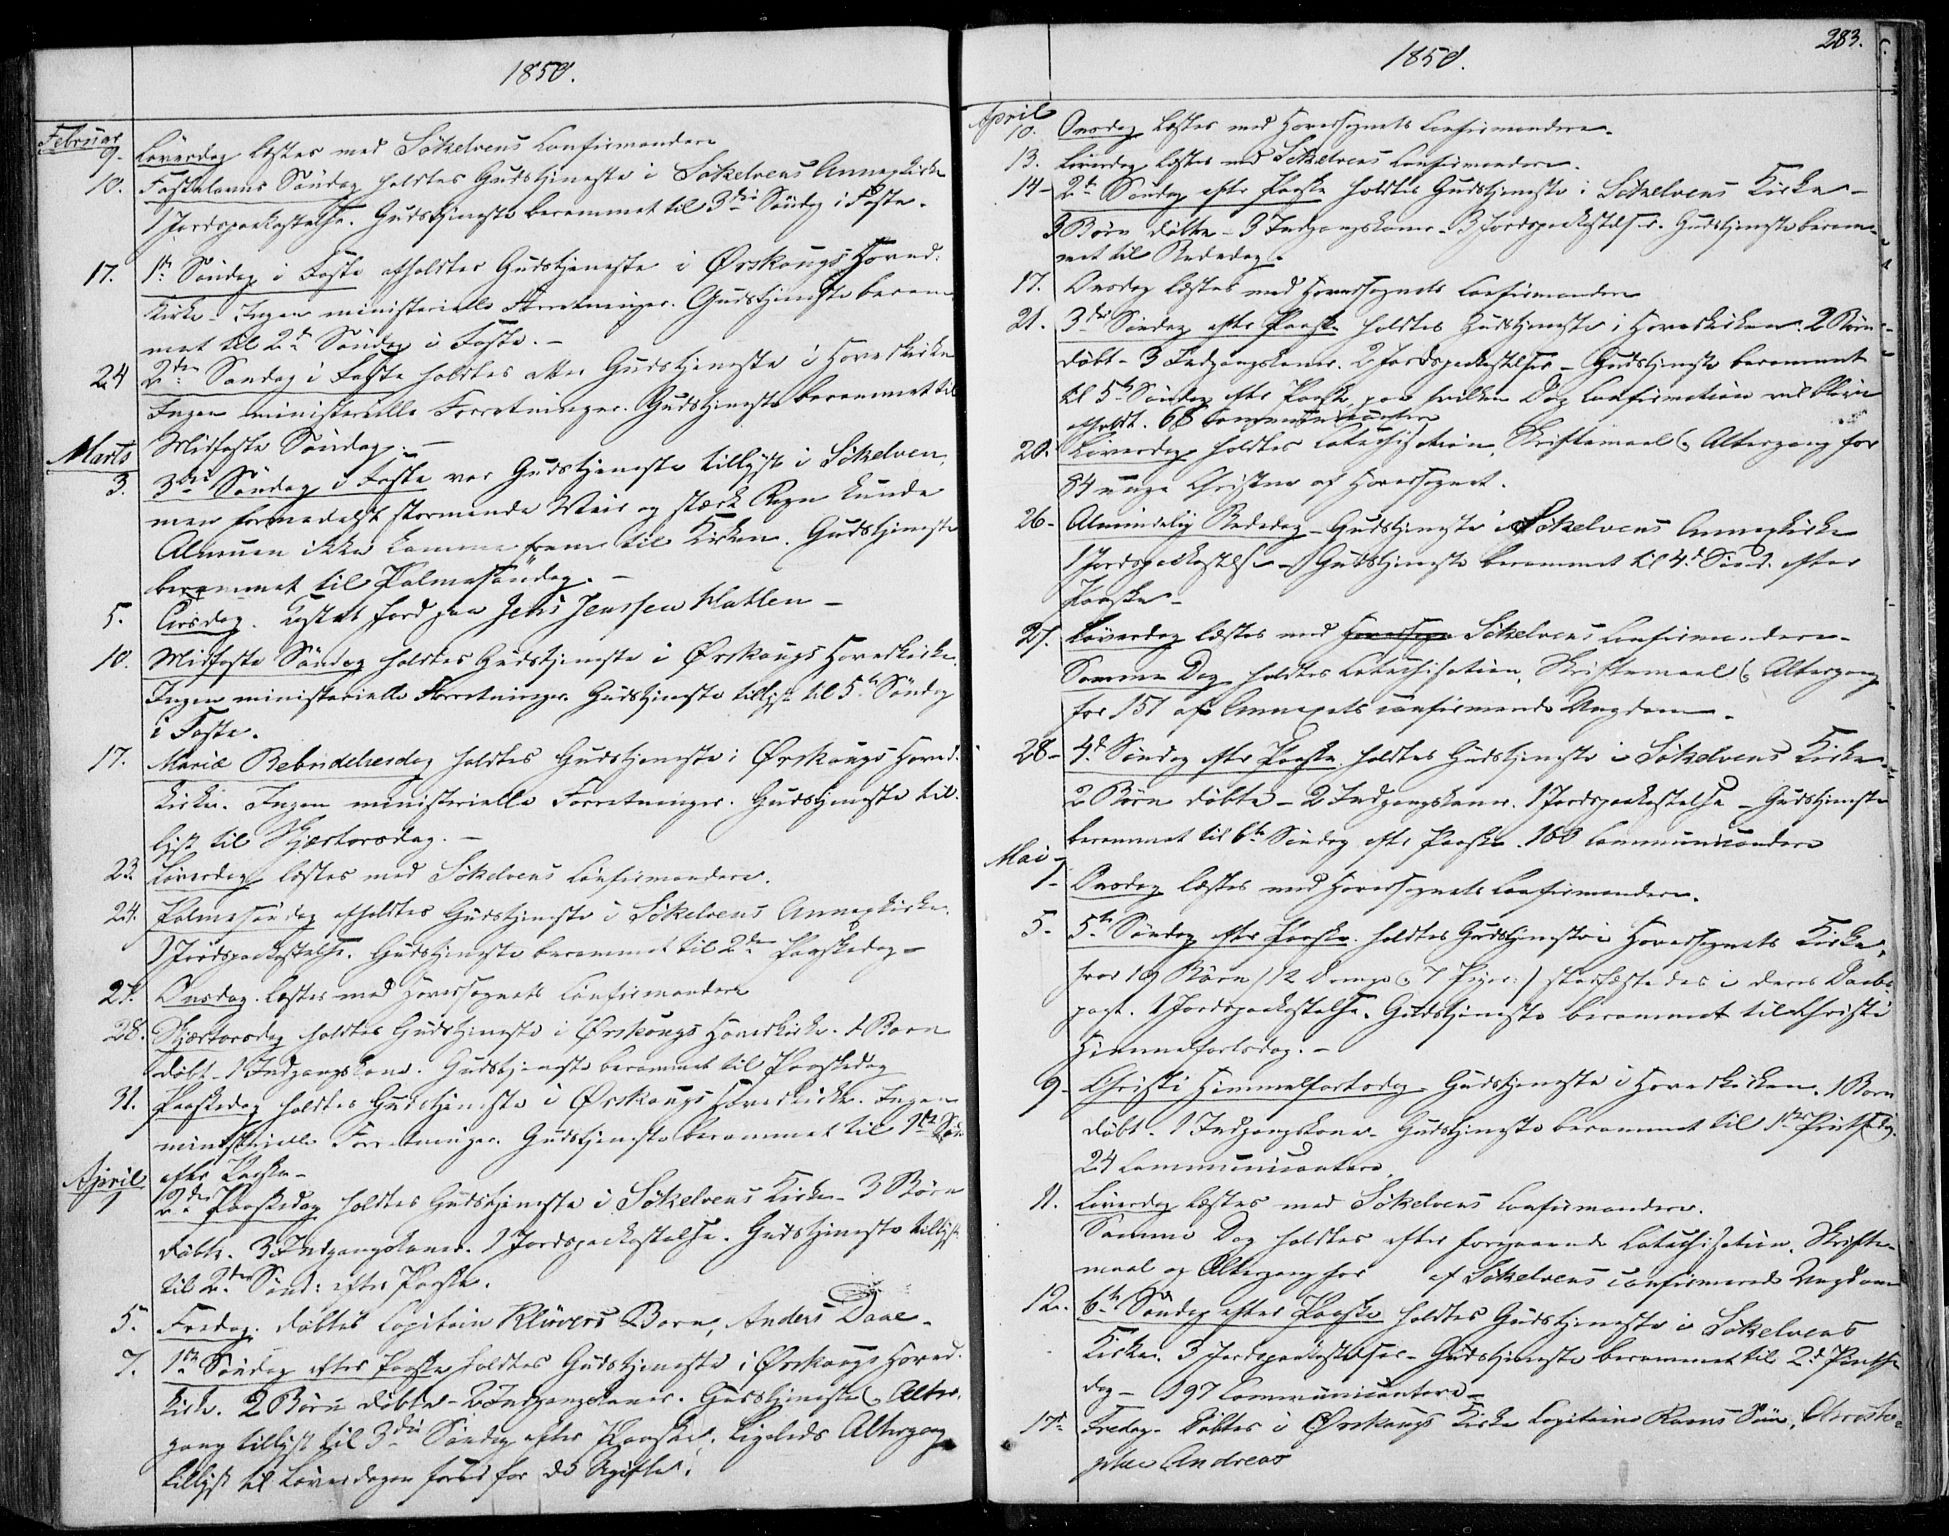 1850.
Februar
9. Løverdag læstes med Søkelvens Confirmander
10. Fastelavns Søndag holdtes Gudstjeneste i Søkelvens Annexkirke
1 Jordspaakastelse. Gudstjeneste berammet til 3die Søndag i Faste.
17. 1ste Søndag i Faste afholdtes Gudstjeneste i Ørskougs Hoved-
kirke. Ingen ministerielle Forretninger. Gudstjeneste beram-
met til 2den Søndag i Faste. –
24 2den Søndag i Faste holdtes atter Gudstjeneste i Hovedkirken
Ingen ministerielle Forretninger. Gudstjeneste berammet til
Midfaste Søndag. –
Marts
3. 3die Søndag i Faste var Gudstjeneste tillyst i Søkelven,
men formedelst stormende Veir og stærk Regn kunde
Almuen ikke komme frem til Kirken. Gudstjeneste
berammet til Palmesøndag. –
5. Tirsdag. kastet Jord paa Jens Jenssen Hatlen –
10. Midfaste Søndag holdtes Gudstjeneste i Ørskougs Hovedkirke.
Ingen ministerielle Forretninger. Gudstjeneste tillyst til 5te Søndag
i Faste.
17. Mariæ Bebudelsesdag holdtes Gudstjeneste i Ørskougs Hoved-
kirke. Ingen ministerielle Forretninger. Gudstjeneste til-
lyst til Skjærtorsdag. –
23. Løverdag læstes med Søkelvens Confirmander.
24. Palmesøndag afholdtes Gudstjeneste i Søkelvens Annexkirke.
1 Jordspaakastelse. Gudstjeneste berammet til 2den Paaskedag –
27. Onsdag. læstes med Hovedsognets Confirmander
28. Skjærtorsdag holdtes Gudstjeneste i Ørskougs Hovedkirke. 1 Barn
døbt – 1 Indgangskone. Gudstjeneste berammet til Paaskedag
31. Paaskedag holdtes Gudstjeneste i Ørskougs Hovedkirke. Ingen
ministerielle Forretninger. Gudstjeneste berammet til 1ste Søn
efter Paaske –
April
1 2den Paaskedag holdtes Gudstjeneste i Søkelvens Kirke – 3 Børn
døbte. 3 Indgangskoner. 1 Jordspaakastelse. Gudstjeneste tillyst
til 2den Sønd: efter Paaske.
5. Fredag. døbtes Capitain Klüvers Barn, Anders Daae –
7. 1ste Søndag efter Paaske holdtes Gudstjeneste i Ørskougs Hoved-
kirke. 2 Børn døbte – 2 Indgangskoner. Gudstjeneste & Alter-
gang tillyst til 3die Søndag efter Paaske. Ligeledes Altergang
tillyst til Løverdagen forud for de Ugifte.
1850.
283.
April
10. Onsdag læstes med Hovedsognets Confirmander.
13. Løverdag læstes med Søkelvens Confirmander.
14 – 2den Søndag efter Paaske holdtes Gudstjeneste i Søkelvens Kirke –
3 Børn døbte – 3 Indgangskoner – 3 Jordspaakastelser. Gudstjeneste beram-
met til Bededag.
17. Onsdag læstes med Hovedsognets Confirmander
21. 3die Søndag efter Paaske holdtes Gudstjeneste i Hovedkirken. 2 Børn
døbt – 3 Indgangskoner. 2 Jordspaakastelser – Gudstjeneste berammet
til 5te Søndag efter Paaske, paa hvilken Dag Confirmation vil blive
afholdt. 68 Communicantere
20. Løverdag holdtes Catechisation, Skriftemaal & Altergang for
84 unge Christne af Hovedsognet.
26 – Almindelig Bededag – Gudstjeneste i Søkelvens Annexkirke
1 Jordspaakastelse – Gudstjeneste berammet til 4de Sønd. efter
Paaske –
27. Løverdag læstes med Hovedsogn Søkelvens Confirmander –
Samme Dag holdtes Catechisation, Skriftemaal & Altergang
for 151 af Annexets confirmerede Ungdom –
28 – 4de Søndag efter Paaske holdtes Gudstjeneste i Søkelvens Kirke.
2 Børn døbte – 2 Indgangskoner. 1 Jordspaakastelse – Gudstjeneste
berammet til 6te Søndag efter Paaske. 160 Communicantere
Mai
1 – Onsdag læstes med Hovedsognets Confirmander.
5 – 5te Søndag efter Paaske. holdtes Gudstjeneste i Hovedsognets Kirke,
hvor 19 Børn (12 Drenge & 7 Piger) stadfæstedes i deres Daabs-
pagt. 1 Jordspaakastelse. Gudstjeneste berammet til Christi
Himmelfartsdag. –
9 – Christi Himmelfartsdag Gudstjeneste i Hovedkirken. 1 Barn
døbt. 1 Indgangskone – Gudstjeneste berammet til 1ste Pintsedag.
24 Communicantere.
11. Løverdag læstes med Søkelvens Confirmander.
Samme Dag holdtes efter foregaaende Catechisation, Skrifte-
maal og Altergang for af Søkelvens confirmerede Ungdom
12. 6te Søndag efter Paaske holdtes Gudstjeneste i Søkelvens
Kirke. 3 Jordspaakastelser – Gudstjeneste berammet til 2den Pintse-
dag – 197 Communicantere –
17. Fredag. Døbtes i Ørskougs Kirke Capitaine Søn,
Andreas